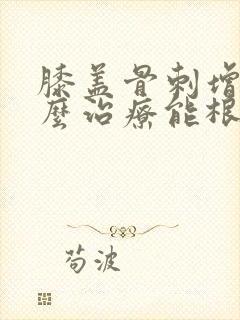 膝盖骨刺增
麼治療能根
苟波